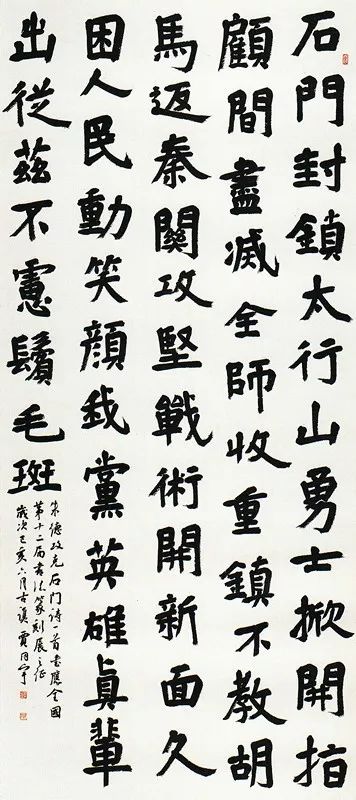 石門封鎖太行山勇士掀開指
顧間盡滅全師收重鎮不教胡
馬返秦關攻堅戰術開新面久
困人民動笑顏我黨英雄眞輩
出從茲不慮鬢毛斑
朱德攻克石門詩一首書應全國
第十二届書法篆刻展之征
歲次己亥六月古賈同